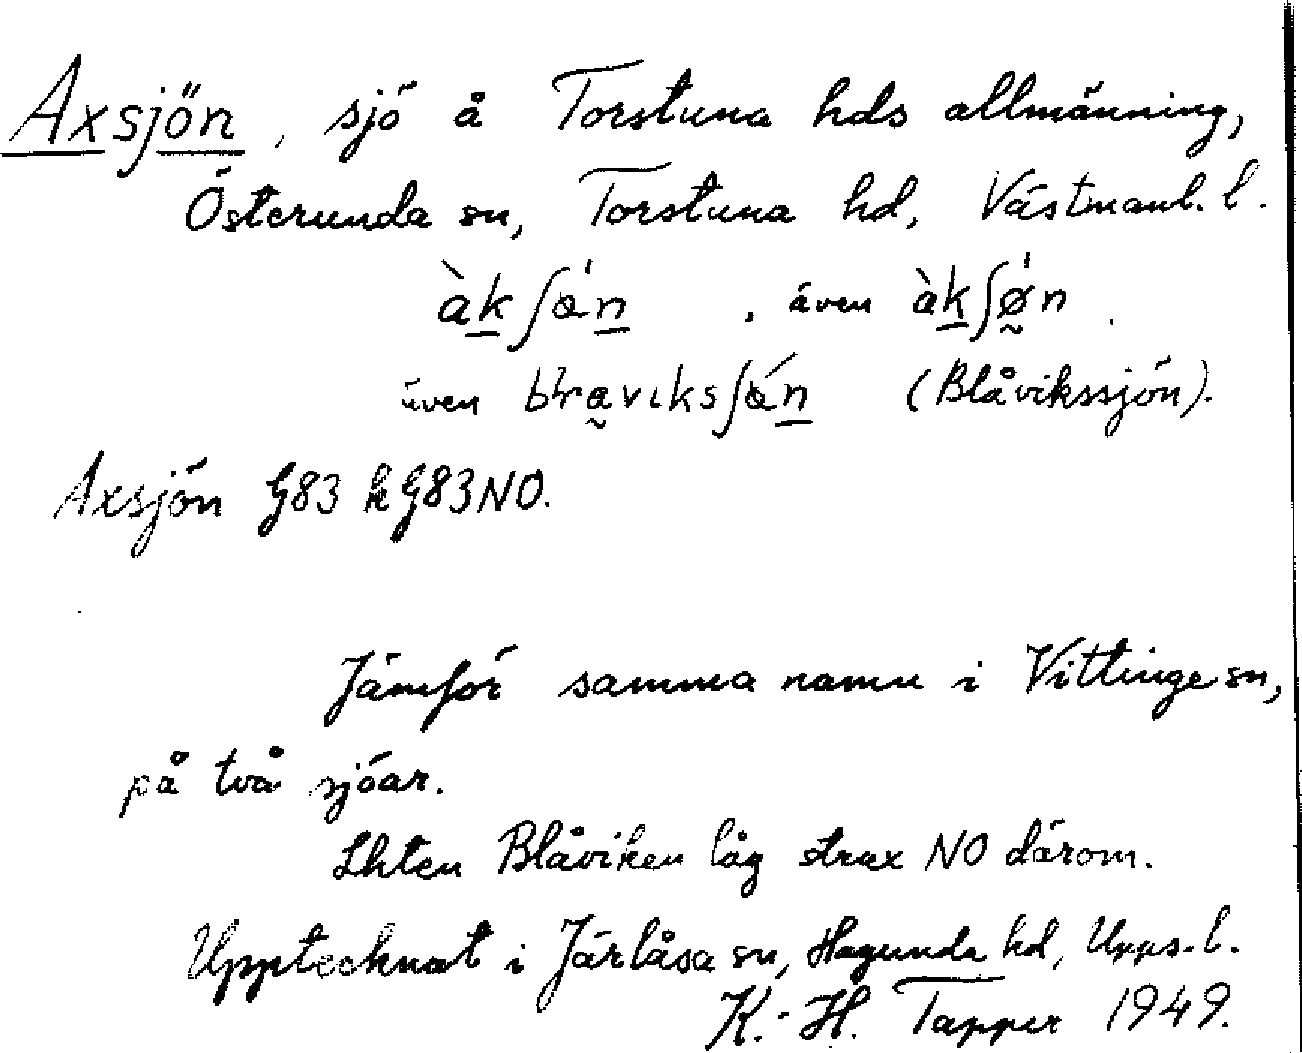 Axsjön, sjö å Torstuna hds allmänning,
Österunda sn, Torstuna hd, Västmanl. l.
àkʃǿn, även àkʃǿ̰n.
även (Blåvikssjön).
Axsjön G83 k G83NO.
Jämför samma namn i Vittinge sn,
på två sjöar.
Lhten Blåviken låg strax NO därom.
Upptecknat i Järlåsa sn, Hagunda hd, Upps. l.
K.-H. Tapper 1949.